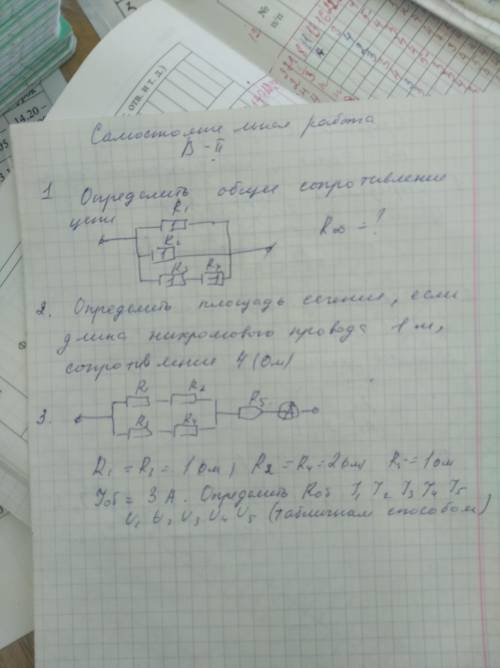 №
п/п
3
отв. и т. д.)
14.20 –
05
Самостоятельная работа
В - II
1 Определить общее сопротивление
цепи
R1
1
R2
1
R3
1
R4
1
Rоб = ?
2. Определить площадь сечения, если
длина нихромового провода 1 м,
сопротивление 4 (Ом)
3.
R
R2
R3
R4
R5
A
R1 = R3 = 1 Ом; R2 = R4 = 2 Ом R5 = 1 Ом
Iоб = 3 А. Определить Rоб I1 I2 I3 I4 I5
U1 U2 U3 U4 U5 (табличным способом)